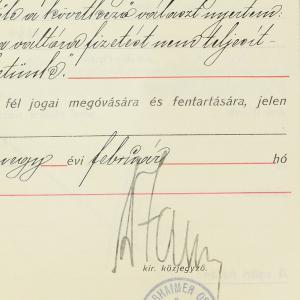 a következő választ nyertem:
a váltóra fizetést nem teljesít-
hetünk".
fél jogai megóvására és fentartására, jelen
négy évi február hó
kir. közjegyző.